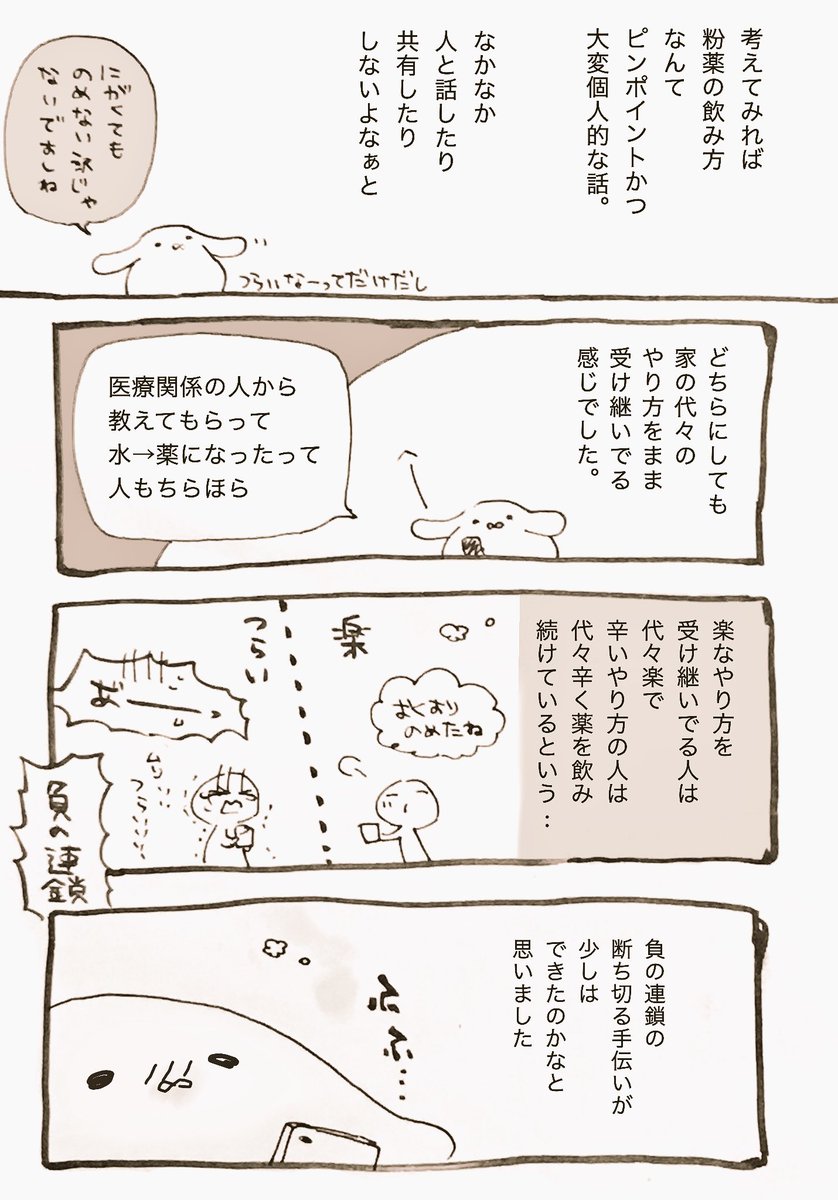 考えてみれば
粉薬の飲み方
なんて
ピンポイントかつ
大変個人的な話。
なかなか
人と話したり
共有したり
しないよなぁと
にがくても
のめない訳じゃ
ないですしね
つらいなーってだけだし
どちらにしても
家の代々の
やり方をまま
受け継いでる
感じでした。
医療関係の人から
教えてもらって
水→薬になったって
人もちらほら
楽なやり方を
受け継いでる人は
代々楽で
辛いやり方の人は
代々辛く薬を飲み
続けているという‥
楽
おくすり
のめたね
つらい
ムリ…
つらい…
負の連鎖
負の連鎖の
断ち切る手伝いが
少しは
できたのかなと
思いました